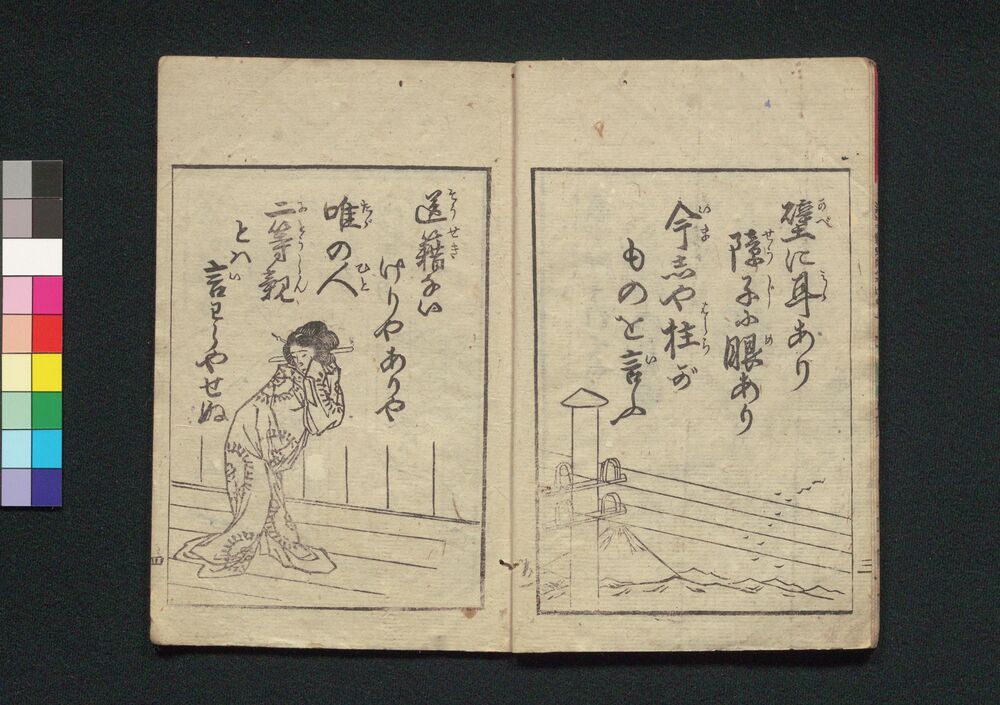 壁に耳あり
障子に眼あり
今じや柱が
ものを言ふ
送籍ない
けりやありや
唯の人
二等親
とハ
言わしやせぬ